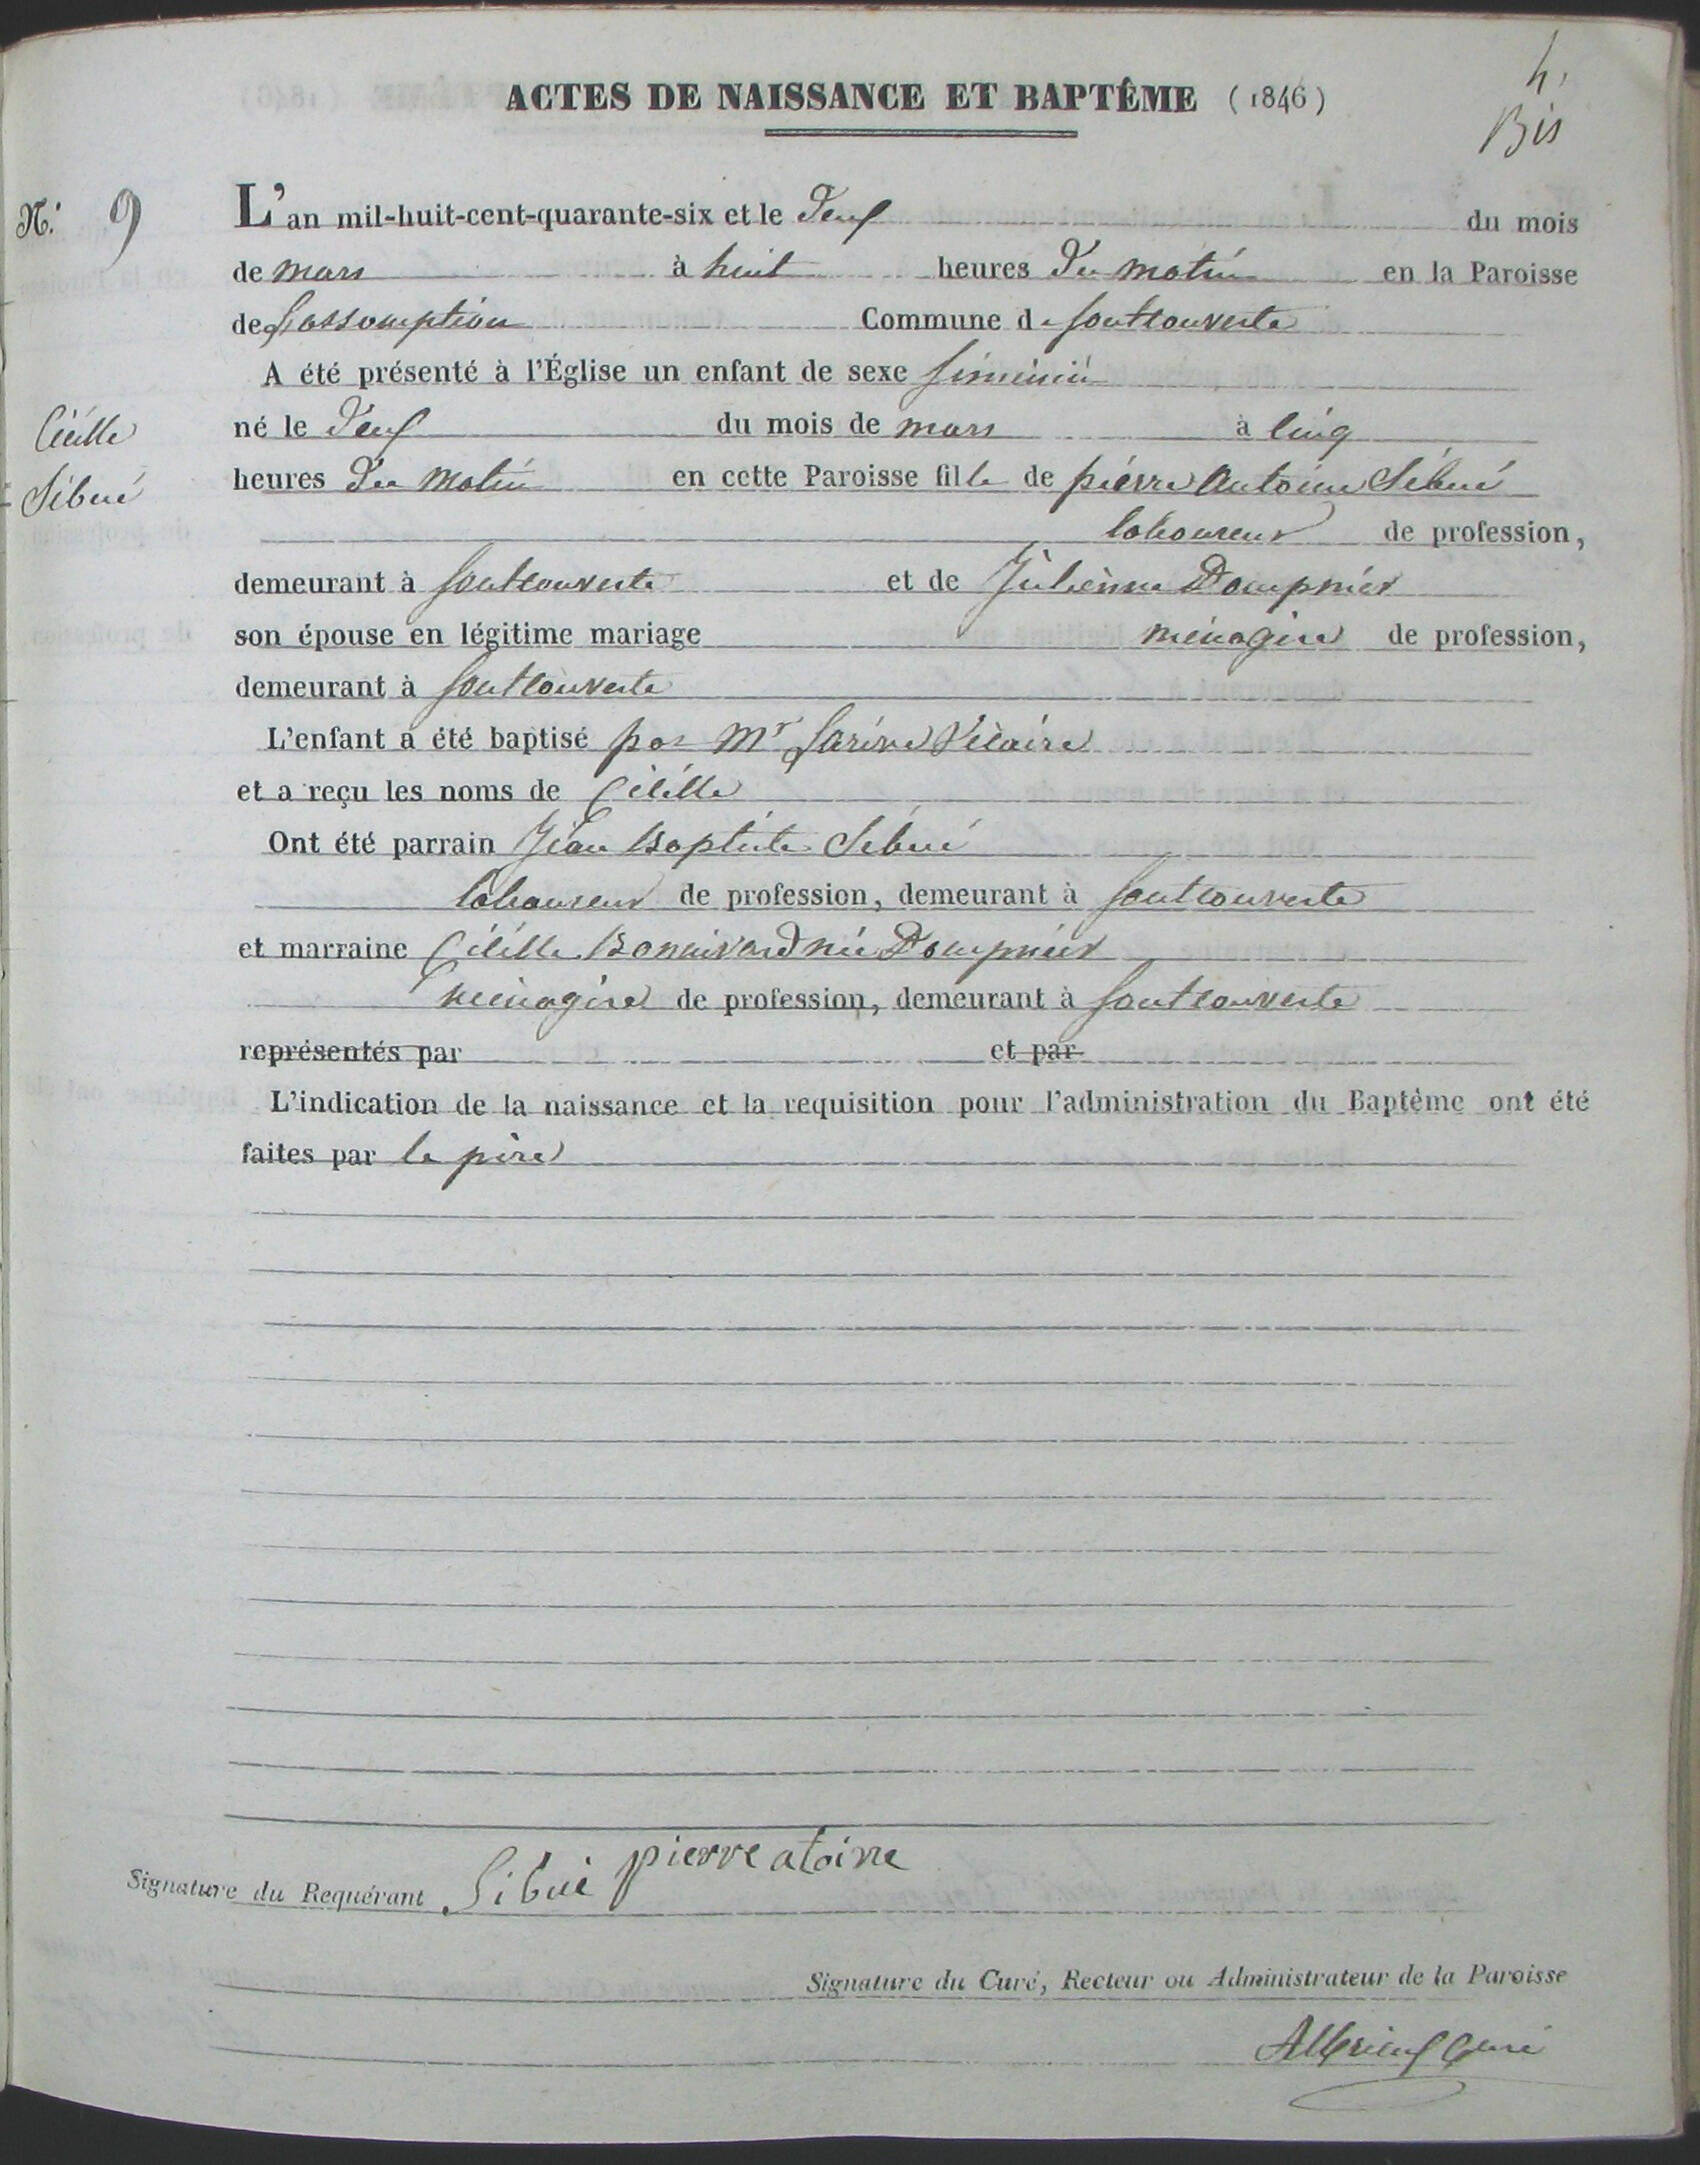 ACTES DE NAISSANCE ET BAPTÊME (1846)
4.
Bis
N.° 9
L'an mil-huit-cent-quarante-six et le Deux du mois
de mars à huit heures Du matin en la Paroisse
de Lassomption Commune de fontcouverte
A été présenté à l'Église un enfant de sexe feminin
né le Deux du mois de mars à cinq
Cécille
Sibué
heures Du matin en cette Paroisse fille de pierre Antoine Sibué
laboureur de profession,
demeurant à fontcouverte et de Julienne Dompnier
son épouse en légitime mariage ménagère de profession,
demeurant à fontcouverte
L'enfant a été baptisé par Mr Vicaire
et a reçu les noms de Cécille
Ont été parrain Jean Baptiste Sibué
laboureur de profession, demeurant à fontcouverte
et marraine Cécille Bonnivard née Dompnier
ménagère de profession, demeurant à fontcouverte
représentés par et par
L'indication de la naissance et la requisition pour l'administration du Baptême ont été
faites par le père
Signature du Requérant Sibué pierre atoine
Signature du Curé, Recteur ou Administrateur de la Paroisse
Albrieux Curé